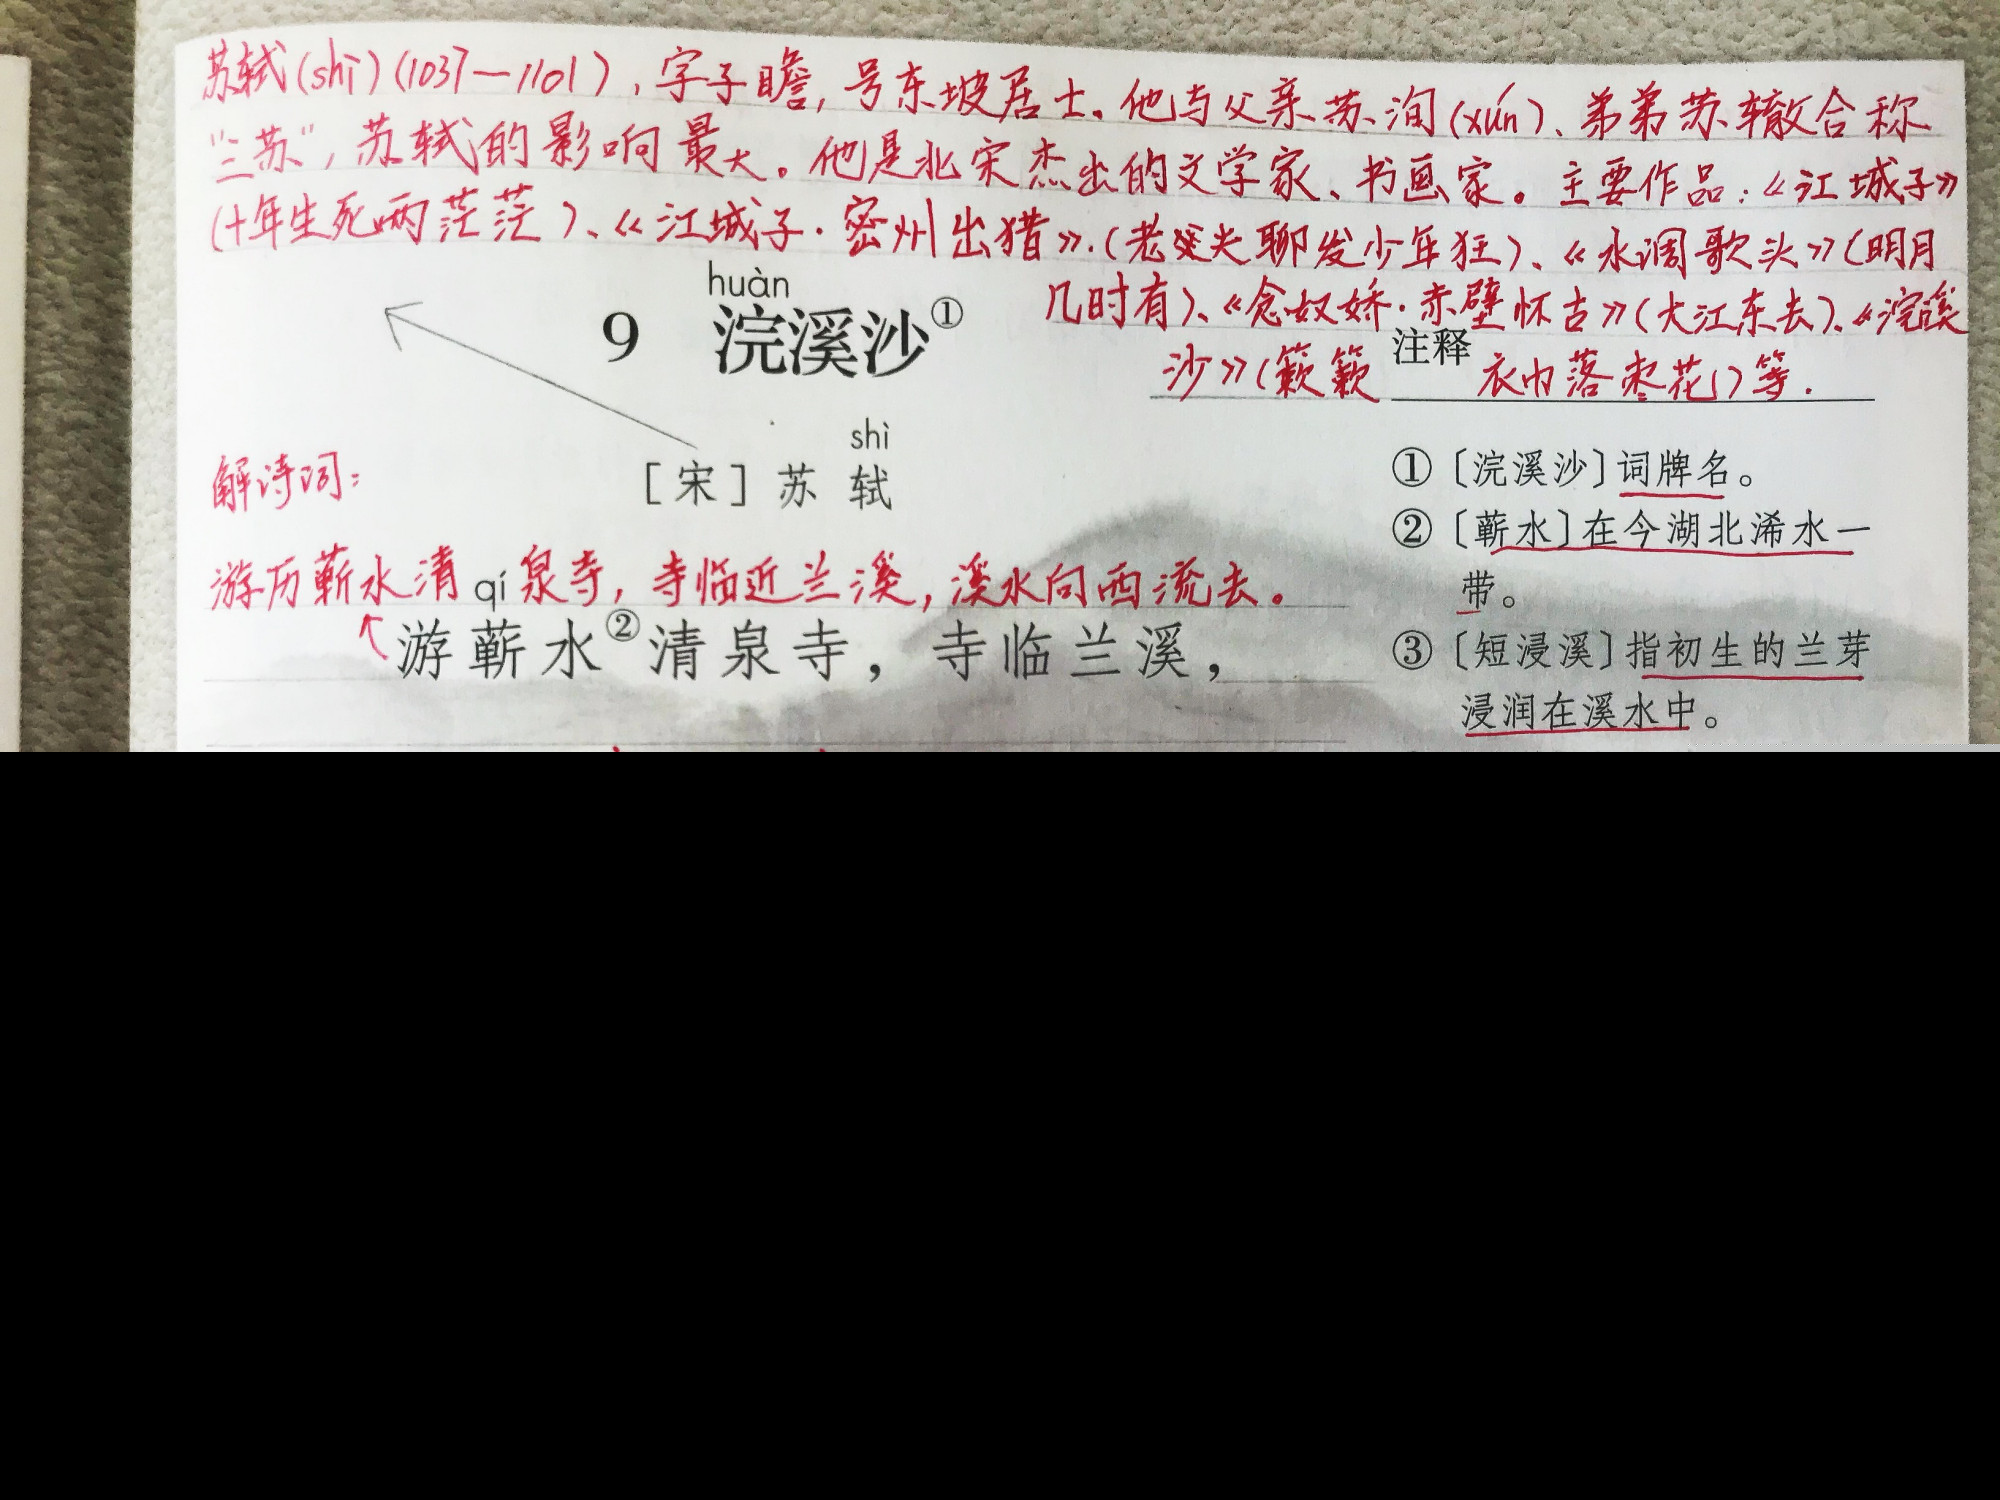 苏轼(shì)(1037—1101),字子瞻,号东坡居士。他与父亲苏洵(xún)、弟弟苏辙合称
“三苏”,苏轼的影响最大。他是北宋杰出的文学家、书画家。主要作品:《江城子》
(十年生死两茫茫)、《江城子·密州出猎》.(老夫聊发少年狂)、《水调歌头》(明月
几时有)、《念奴娇·赤壁怀古》(大江东去)、《浣溪
沙》(簌簌衣巾落枣花)等.
huàn
9 浣溪沙①
shì
[宋]苏 轼
解诗词:
游历蕲水清泉寺,寺临近兰溪,溪水向西流去。
qí
游蕲水②清泉寺,寺临兰溪,
注释
①〔浣溪沙〕词牌名。
②〔蕲水〕在今湖北浠水一
带。
③〔短浸溪〕指初生的兰芽
浸润在溪水中。